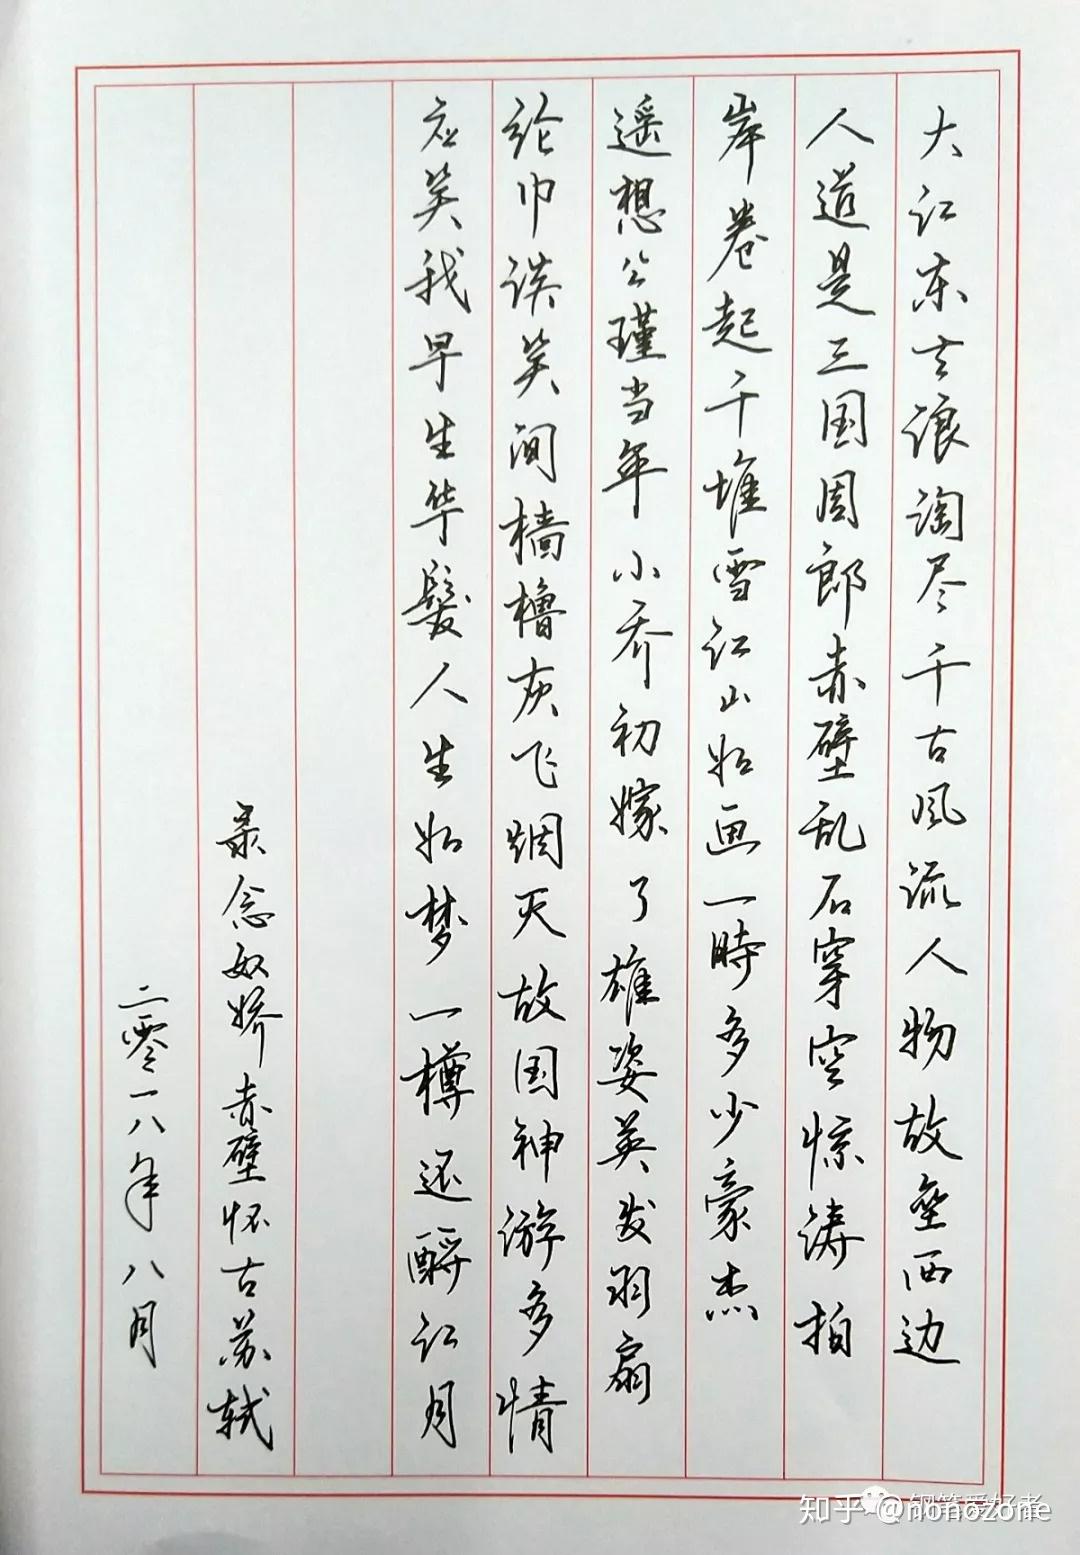 大江东去浪淘尽千古风流人物故垒西边
人道是三国周郎赤壁乱石穿空惊涛拍
岸卷起千堆雪江山如画一時多少豪杰
遥想公瑾当年小乔初嫁了雄姿英发羽扇
纶巾谈笑间樯橹灰飞烟灭故国神游多情
应笑我早生华髮人生如梦一樽还酹江月
录念奴娇赤壁怀古苏轼
二零一八年八月
知乎 @nonozone